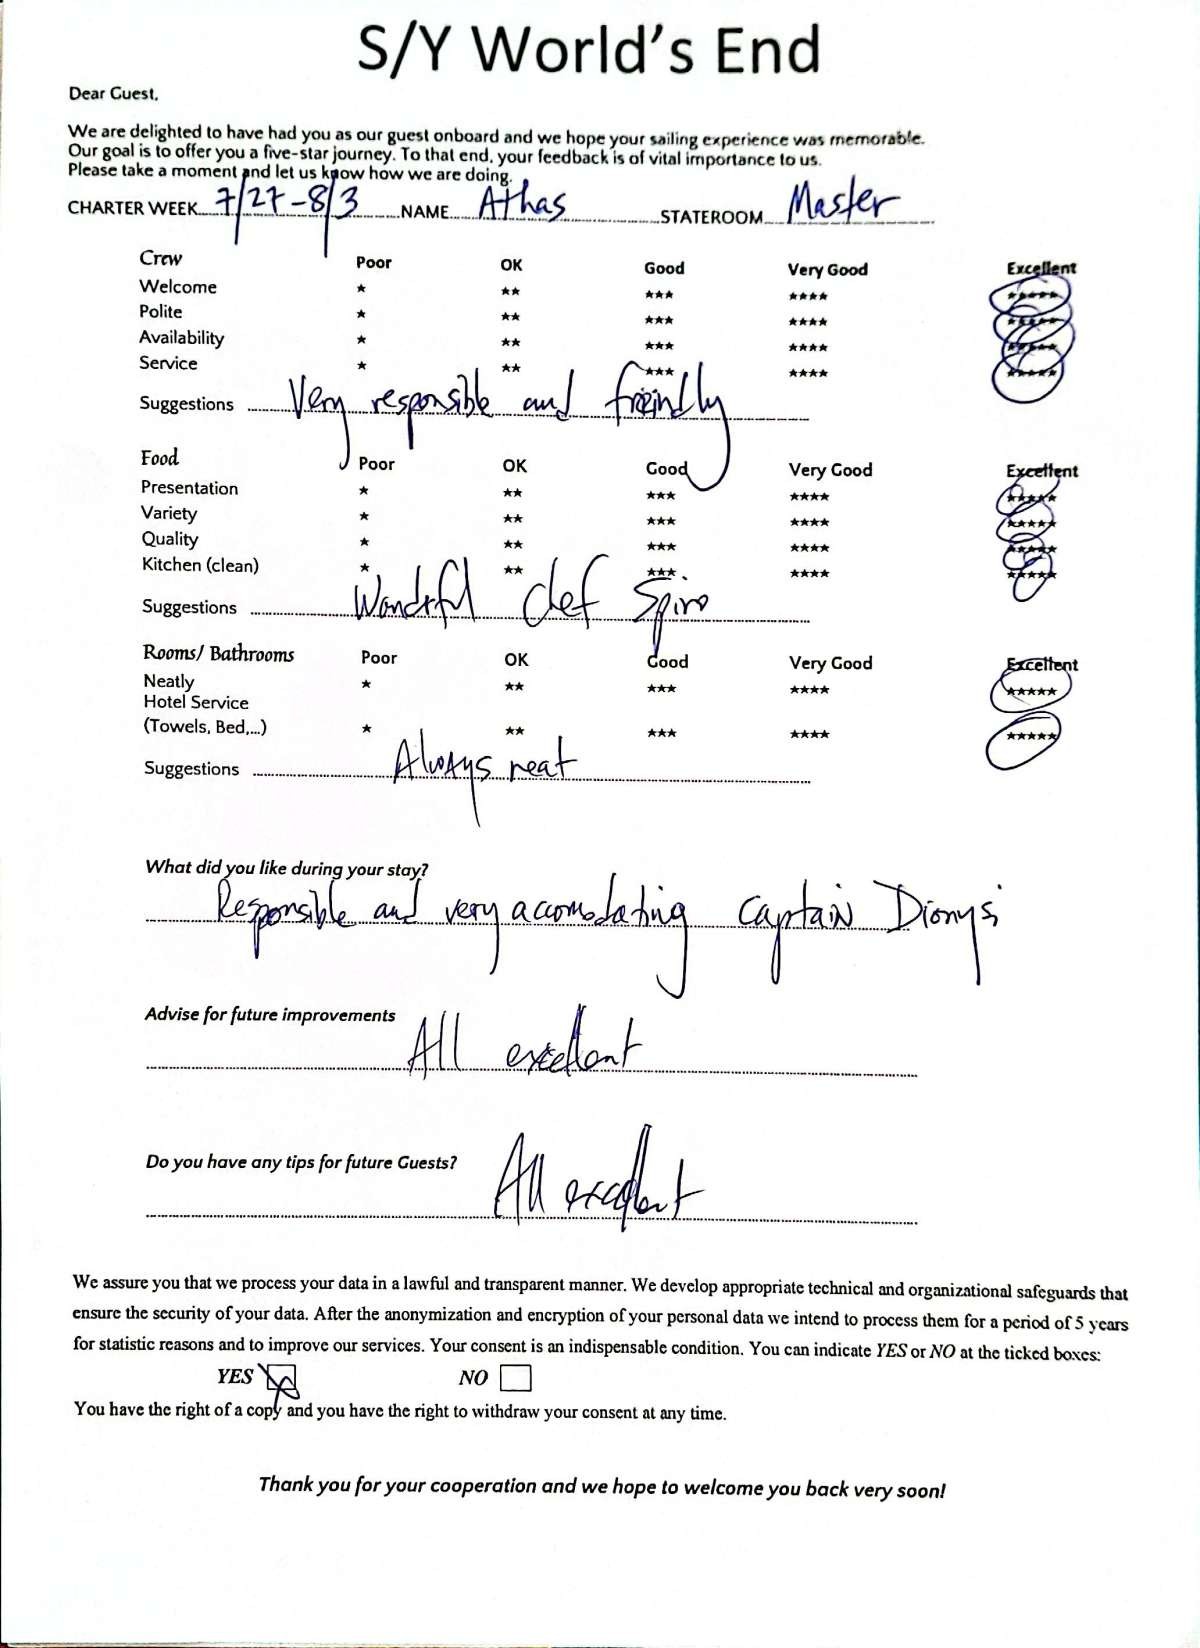 S/Y World's End
Dear Guest,
We are delighted to have had you as our guest onboard and we hope your sailing experience was memorable.
Our goal is to offer you a five-star journey. To that end, your feedback is of vital importance to us.
Please take a moment and let us know how we are doing.
CHARTER WEEK 7/27-8/3 NAME Athas STATEROOM Master
Crew Poor OK Good Very Good Excellent
Welcome ★ ★★ ★★★ ★★★★ ★★★★★
Polite ★ ★★ ★★★ ★★★★ ★★★★★
Availability ★ ★★ ★★★ ★★★★ ★★★★★
Service ★ ★★ ★★★ ★★★★ ★★★★★
Suggestions Very responsible and freindly
Food Poor OK Good Very Good Excellent
Presentation ★ ★★ ★★★ ★★★★ ★★★★★
Variety ★ ★★ ★★★ ★★★★ ★★★★★
Quality ★ ★★ ★★★ ★★★★ ★★★★★
Kitchen (clean) ★ ★★ ★★★ ★★★★ ★★★★★
Suggestions Wondrful chef Spiro
Rooms/ Bathrooms Poor OK Good Very Good Excellent
Neatly ★ ★★ ★★★ ★★★★ ★★★★★
Hotel Service
(Towels, Bed,...) ★ ★★ ★★★ ★★★★ ★★★★★
Suggestions Always neat
What did you like during your stay?
Responsible and very accomodating Captain Dionysi
Advise for future improvements
All excellent
Do you have any tips for future Guests?
All excellent
We assure you that we process your data in a lawful and transparent manner. We develop appropriate technical and organizational safeguards that
ensure the security of your data. After the anonymization and encryption of your personal data we intend to process them for a period of 5 years
for statistic reasons and to improve our services. Your consent is an indispensable condition. You can indicate YES or NO at the ticked boxes:
YES NO
You have the right of a copy and you have the right to withdraw your consent at any time.
Thank you for your cooperation and we hope to welcome you back very soon!